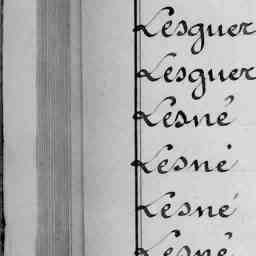 Lesguer
Lesguer
Lesné
Lesné
Lesné
Lesné